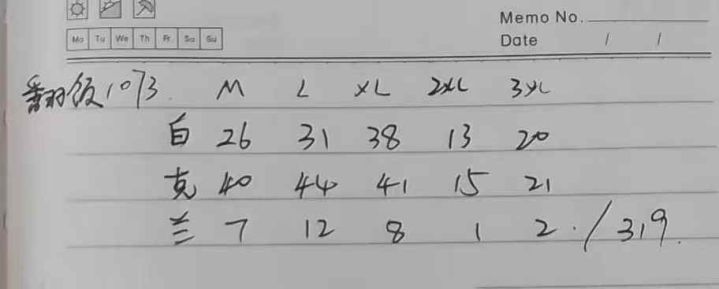 Memo No.
Mo Tu We Th Fr Sa Su
Date / /
翻版1073. M L XL 2XL 3XL
白 26 31 38 13 20
克 40 44 41 15 21
兰 7 12 8 1 2 . / 319.